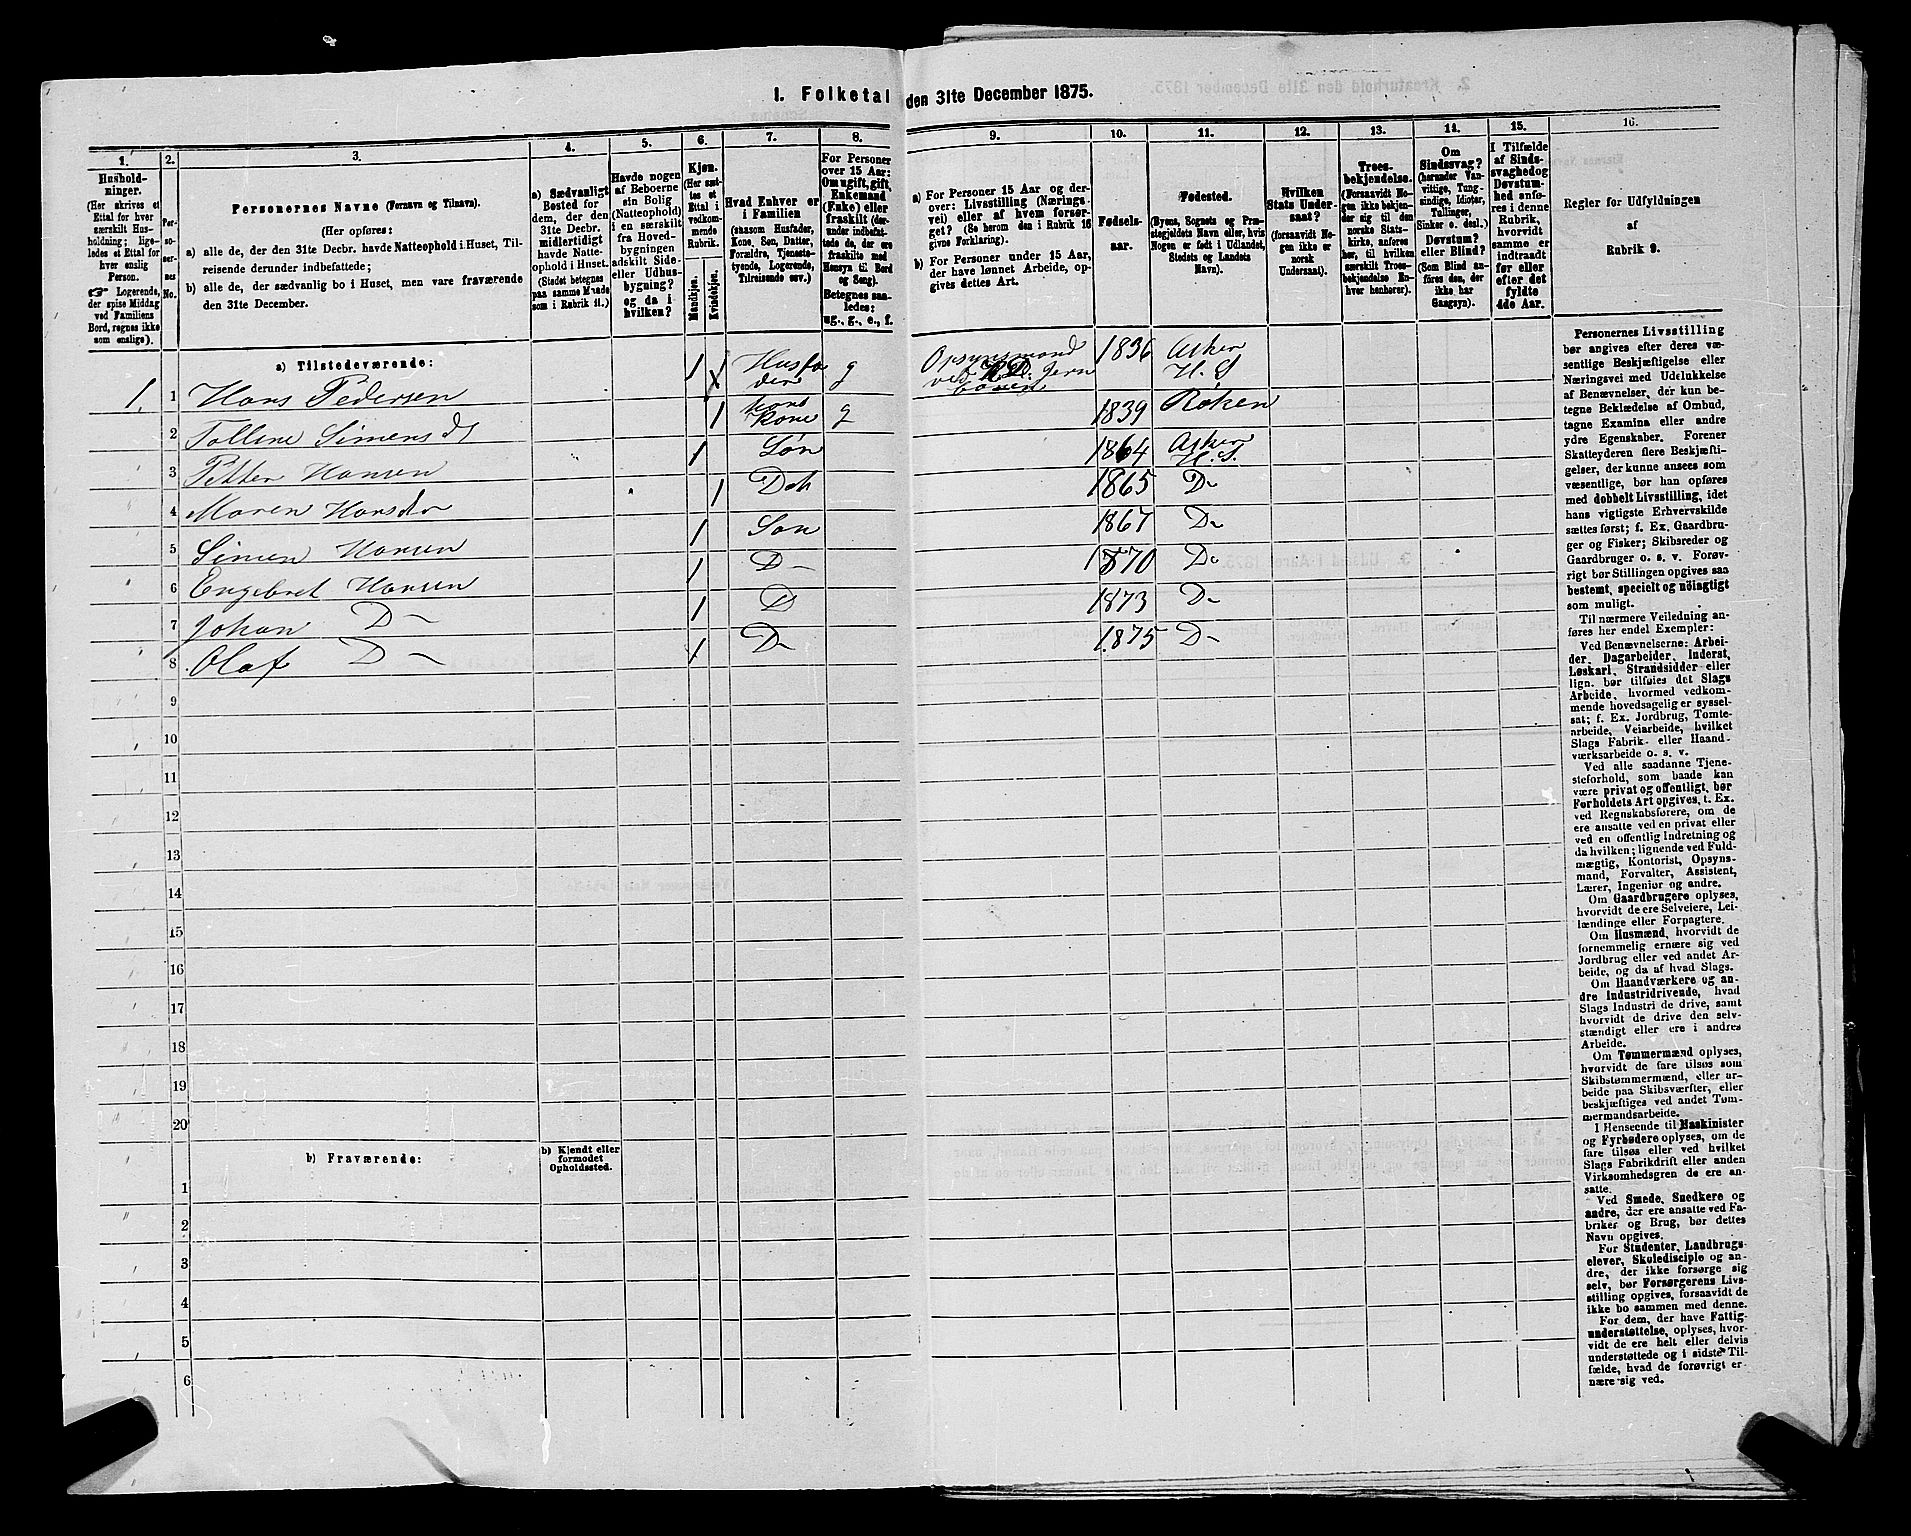 I. Folketal den 31te December 1875.
1.
Husholdninger.
(Her skrives et Ettal for hver særskilt Husholdning; ligeledes et Ettal for hver enslig Person.
☞ Logerende, der spise Middag ved Familiens Bord, regnes ikke som enslige).
2.
Personernes No.
3.
Personernes Navne (Fornavn og Tilnavn).
(Her opføres:
a) alle de, der den 31te Decbr. havde Natteophold i Huset, Tilreisende derunder indbefattede;
b) alle de, der sædvanlig bo i Huset, men vare fraværende den 31te December.
4.
a) Sædvanligt Bosted for dem, der den 31te Decbr. midlertidigt havde Natteophold i Huset. (Stedet betegnes paa samme Maade som i Rubrik 11.)
5.
Havde nogen af Beboerne sin Bolig (Natteophold) i en særskilt fra Hovedbygningen adskilt Side- eller Udhusbygning? og da i hvilken?
6.
Kjøn.
(Her sættes et Ettal i vedkommende Rubrik.
Mandkjøn.
Kvindekjøn.
7.
Hvad Enhver er i Familien
(saasom Husfader, Kone, Søn, Datter, Forældre, Tjenestetyende, Logerende, Tilreisende osv.)
8.
For Personer over 15 Aar: Om ugift, gift, Enkemand (Enke) eller fraskilt (derunder indbefattede de, der ere fraskilte med Hensyn til Bord og Seng).
Betegnes saaledes: ug., g., e., f.
9.
a) For Personer 15 Aar og derover: Livsstilling (Næringsvei) eller af hvem forsørget? (Se herom den i Rubrik 16 givne Forklaring).
b) For Personer under 15 Aar, der have lønnet Arbeide, opgives dettes Art.
10.
Fødselsaar.
11.
Fødested.
(Byens, Sognets og Præstegjeldets Navn eller, hvis Nogen er født i Udlandet, Stedets og Landets Navn).
12.
Hvilken Stats Undersaat?
(forsaavidt Nogen ikke er norsk Undersaat).
13.
Troesbekjendelse.
(Forsaavidt Nogen ikke bekjender sig til den norske Statskirke, anføres her, til hvilken særskilt Troesbekjendelse Enhver henhører).
14.
Om Sindssvag? (herunder Vanvittige, Tungsindige, Idioter, Tullinger, Sinker o. desl.) Døvstum? eller Blind? (Som Blind anføres den, der ikke har Gangsyn).
15.
I Tilfælde af Sindssvaghed og Døvstumhed anføres i denne Rubrik, hvorvidt samme er indtraadt før eller efter det fyldte 4de Aar.
16.
Regler for Udfyldningen af Rubrik 9.
a) Tilstedeværende:
1. 1 Hans Pedersen 1 Husfader g Opsynsmand ved Jernbanen 1836 Asker H. S
2 Tolline Simensdt 1 hans Kone g 1839 Røken
3 Petter Hansen 1 Søn 1864 Asker H. S.
4 Maren Hansdtr 1 Dat 1865 D-
5 Simen Hansen 1 Søn 1867 D-
6 Engebret Hansen 1 D- 1870 Do
7 Johan D- 1 D 1873 D-
8 Olaf D- 1 D- 1875 D-
9
10
11
12
13
14
15
16
17
18
19
20
b) Fraværende:
b) Kjendt eller formodet Opholdssted.
1
2
3
4
5
6
Personernes Livsstilling
bør angives efter deres væsentlige Beskjæftigelse eller
Næringsvei med Udelukkelse
af Benævnelser, der kun betegne Beklædelse af Ombud,
tagne Examina eller andre
ydre Egenskaber. Forener
Skatteyderen flere Beskjæftigelser, der kunne ansees som
væsentlige, bør han opføres
med dobbelt Livsstilling, idet
hans vigtigste Erhvervskilde
sættes først; f. Ex. Gaardbruger og Fisker; Skibsreder og
Gaardbruger o. s. v. Forøvrigt bør Stillingen opgives saa
bestemt, specielt og nøiagtigt
som muligt.
Til nærmere Veiledning anføres her endel Exempler:
Ved Benævnelserne: Arbeider, Dagarbeider, Inderst,
Løskarl, Strandsidder eller
lign. bør tilføies det Slags
Arbeide, hvormed vedkommende hovedsagelig er sysselsat; f. Ex. Jordbrug, Tomtearbeide, Veiarbeide, hvilket
Slags Fabrik- eller Haandværksarbeide o. s. v.
Ved alle saadanne Tjenesteforhold, som baade kan
være privat og offentligt, bør
Forholdets Art opgives, t. Ex.
ved Regnskabsførere, om de
ere ansatte ved en privat eller
ved en offentlig Indretning og
da hvilken; lignende ved Fuldmægtig, Kontorist, Opsynsmand, Forvalter, Assistent,
Lærer, Ingeniør og andre.
Om Gaardbrugere oplyses,
hvorvidt de ere Selveiere, Leilændinge eller Forpagtere.
Om Husmænd, hvorvidt de
fornemmelig ernære sig ved
Jordbrug eller ved andet Arbeide, og da af hvad Slags.
Om Haandværkere og andre Industridrivende, hvad
Slags Industri de drive, samt
hvorvidt de drive den selvstændigt eller ere i andres
Arbeide.
Om Tømmermænd oplyses,
hvorvidt de fare tilsøs som
Skibstømmermænd, eller arbeide paa Skibsværfter, eller
beskjæftiges ved andet Tømmermandsarbeide.
I Henseende til Maskinister
og Fyrbødere oplyses, om de
fare tilsøs eller ved hvilket
Slags Fabrikdrift eller anden
Virksomhedsgren de ere ansatte.
Ved Smede, Snedkere og
andre, der ere ansatte ved Fabriker og Brug, bør dettes
Navn opgives.
For Studenter, Landbrugselever, Skoledisciple og andre, der ikke forsørge sig
selv, bør Forsørgerens Livsstilling opgives, forsaavidt de
ikke bo sammen med denne.
For dem, der have Fattigunderstøttelse, oplyses, hvorvidt de ere helt eller delvis
understøttede og i sidste Tilfælde, hvad de forøvrigt ernære sig ved.